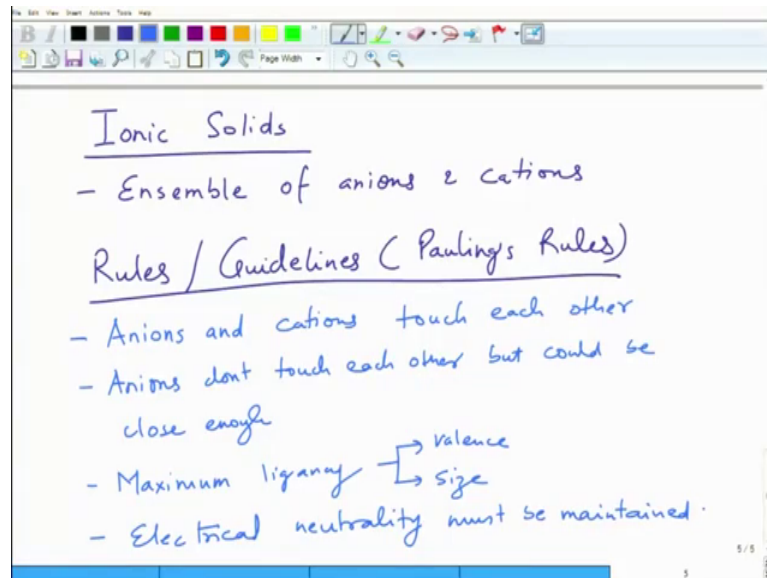 File Edit View Insert Actions Tools Help
B I
Page Width
Ionic Solids
- Ensemble of anions & cations
Rules / Guidelines (Pauling's Rules)
- Anions and cations touch each other
- Anions dont touch each other but could be
close enough
- Maximum ligancy → valence
→ size
- Electrical neutrality must be maintained.
5/5
5